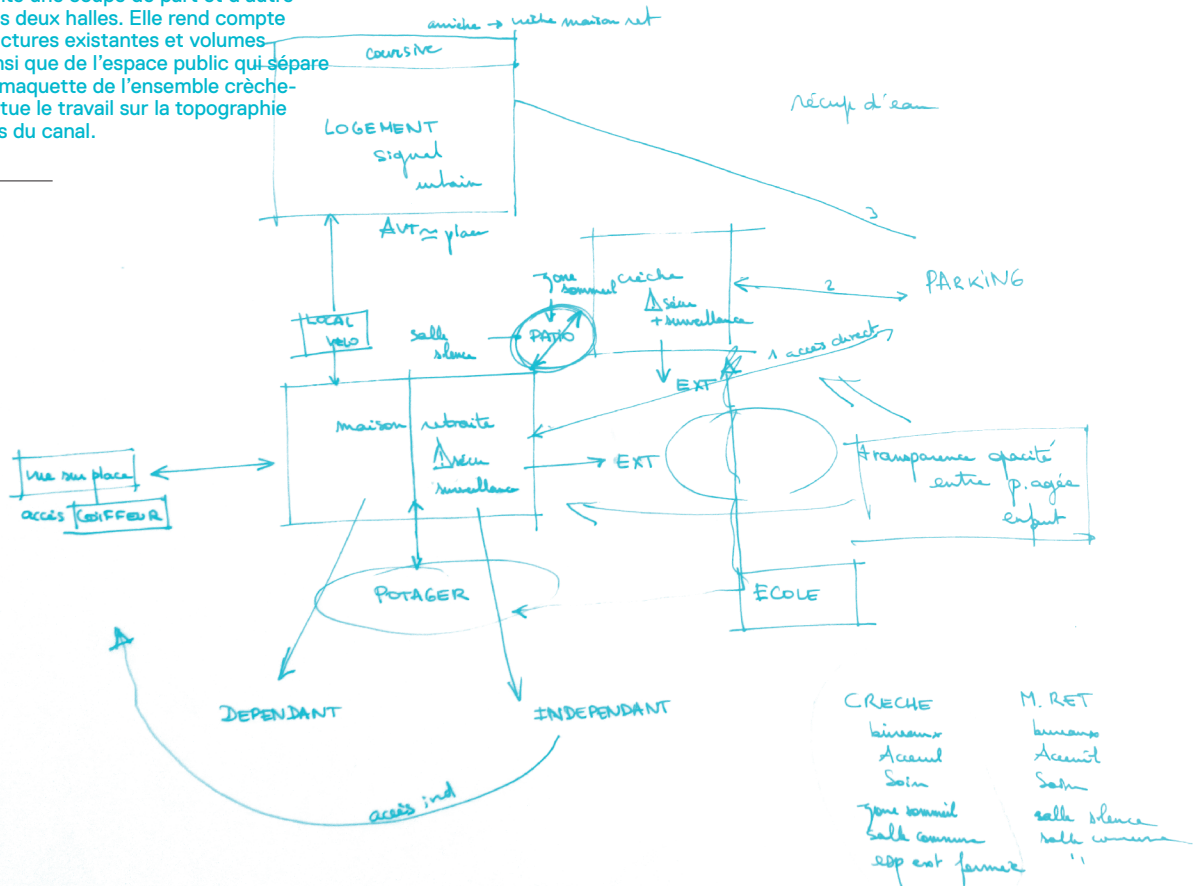 une coupe de part et d'autre
s deux halles. Elle rend compte
ctures existantes et volumes
nsi que de l'espace public qui sépare
maquette de l'ensemble crèche-
tue le travail sur la topographie
s du canal.
→ maison ret
coursive
récup d'eau
LOGEMENT
signal
urbain
3
AVT place
zone
sommeil
crèche
sécu
+ surveillance
PARKING
2
LOCAL
VELO
salle
silence
PATIO
1 accès direct
EXT
maison retraite
sécu
surveillance
EXT
transparence opacité
entre p. agée
enfant
vue sur place
accès COIFFEUR
POTAGER
ECOLE
DEPENDANT
INDEPENDANT
accès ind
CRECHE
bureaux
Accueil
Soin
zone sommeil
salle commune
esp ext fermé
M. RET
bureaux
Accueil
Soin
salle silence
salle commune
"